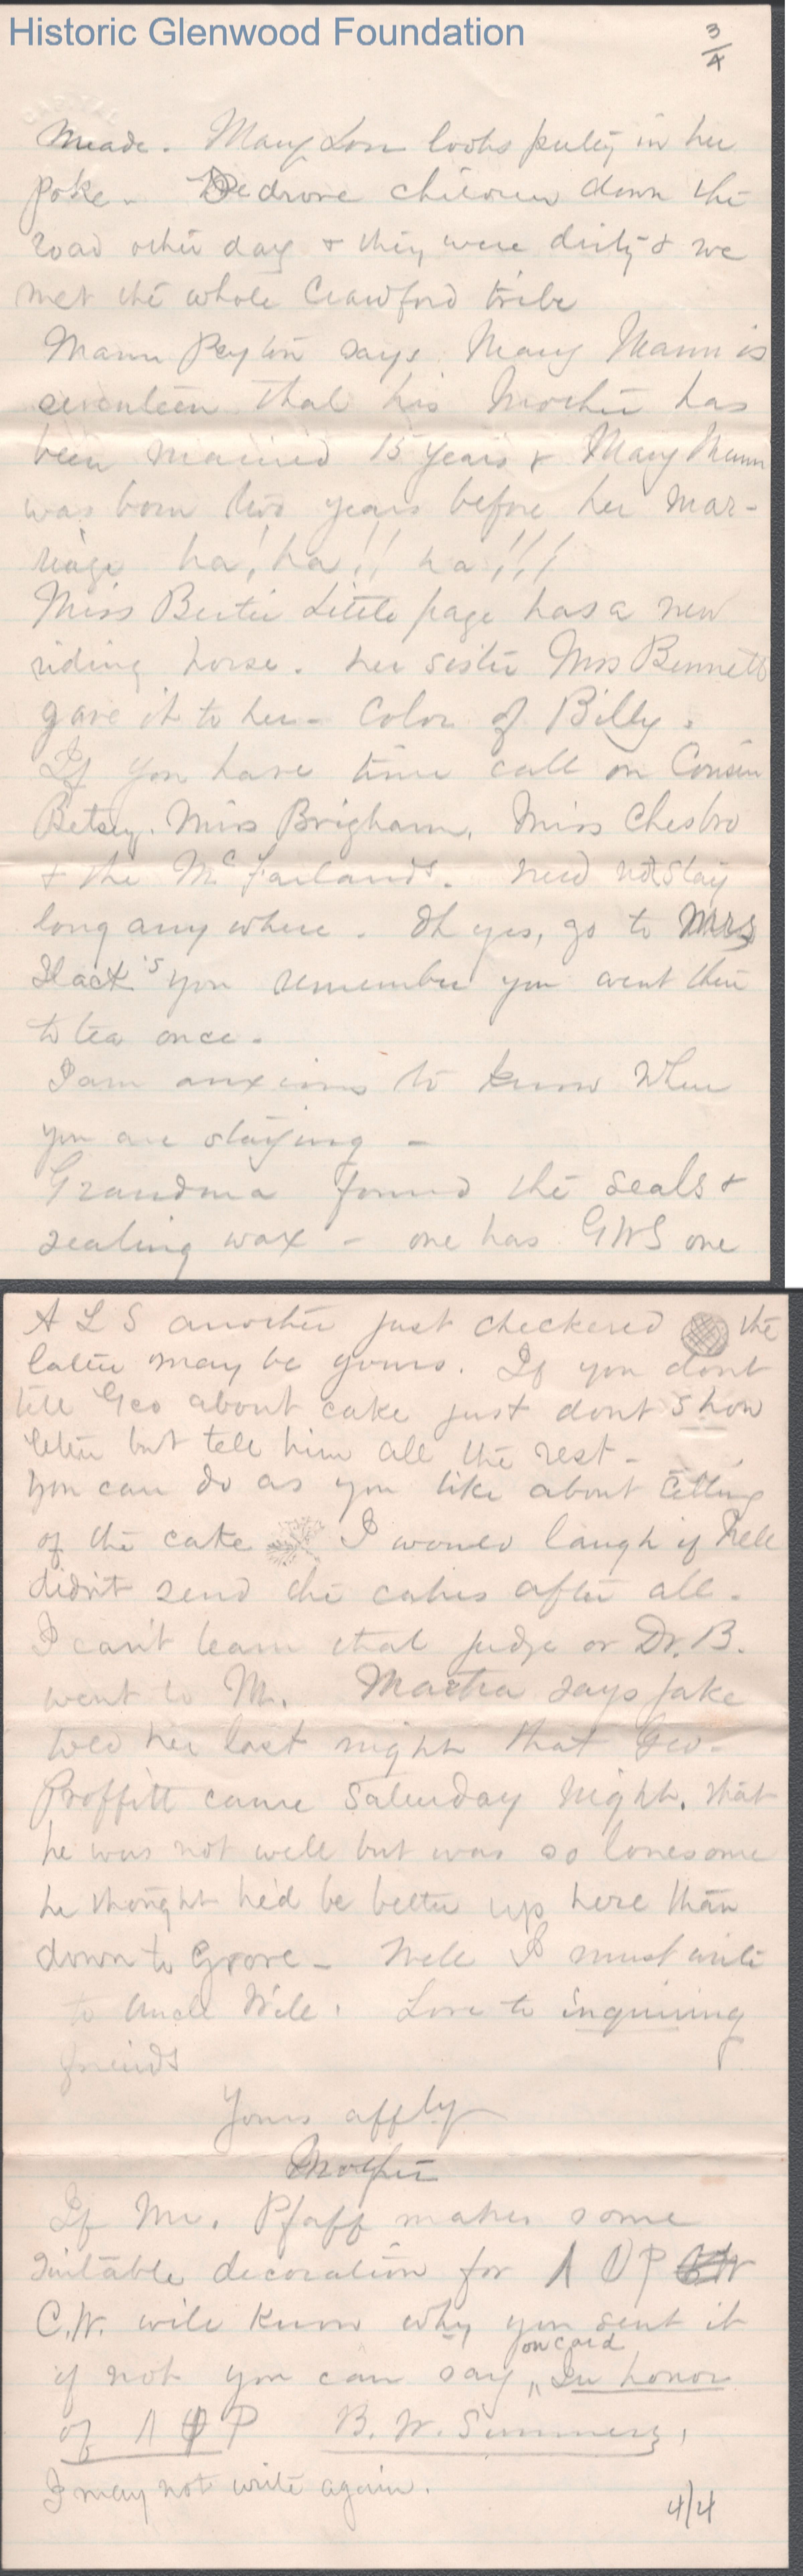 Historic Glenwood Foundation
3/4
Meade. Mary Lou looks pretty in her
poke. We drove children down the
road other day & they were dirty & we
met the whole Crawford tribe
Mann Peyton says Mary Mann is
seventeen that his Mother has
been married 15 years & Mary Mann
was born two years before her mar-
riage ha! ha!! ha!!!
Miss Bertie Little page has a new
riding horse. her sister Mrs Bennett
gave it to her - Color of Billy.
If you have time call on Cousin
Betsey. Miss Brigham, Miss Chesbro
& the McFarlands. need not stay
long any where. Oh yes, go to Mrs
's you remember you went there
to tea once.
I am anxious to know where
you are staying -
Grandma found the seals &
sealing wax - one has GWS one
A L S another just checkered the
latter may be yours. If you dont
tell Geo about cake just dont show
letter but tell him all the rest -
You can do as you like about telling
of the cake I would laugh if Nell
didn't send the cakes after all.
I can't learn that judge or Dr. B.
went to M. Martha says Jake
told her last night that Geo.
Proffitt came Saturday night. that
he was not well but was so lonesome
he thought he'd be better up here than
down to Grove - Well I must write
to Uncle Will. Love to inquiring
friends
Yours affly
Mother
If Mr. Pfaff makes some
suitable decoration for Λ Φ P
C.W. will know why you sent it
on card
if not you can say "In honor
of Λ Φ P B. W. Summers,
I may not write again.
4/4